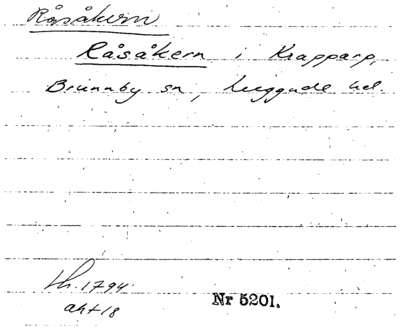 Råsåkern
Råsåkern i Krapparp,
Brunnby sn, Luggude hd.
lh. 1794
akt 18
Nr 5201.